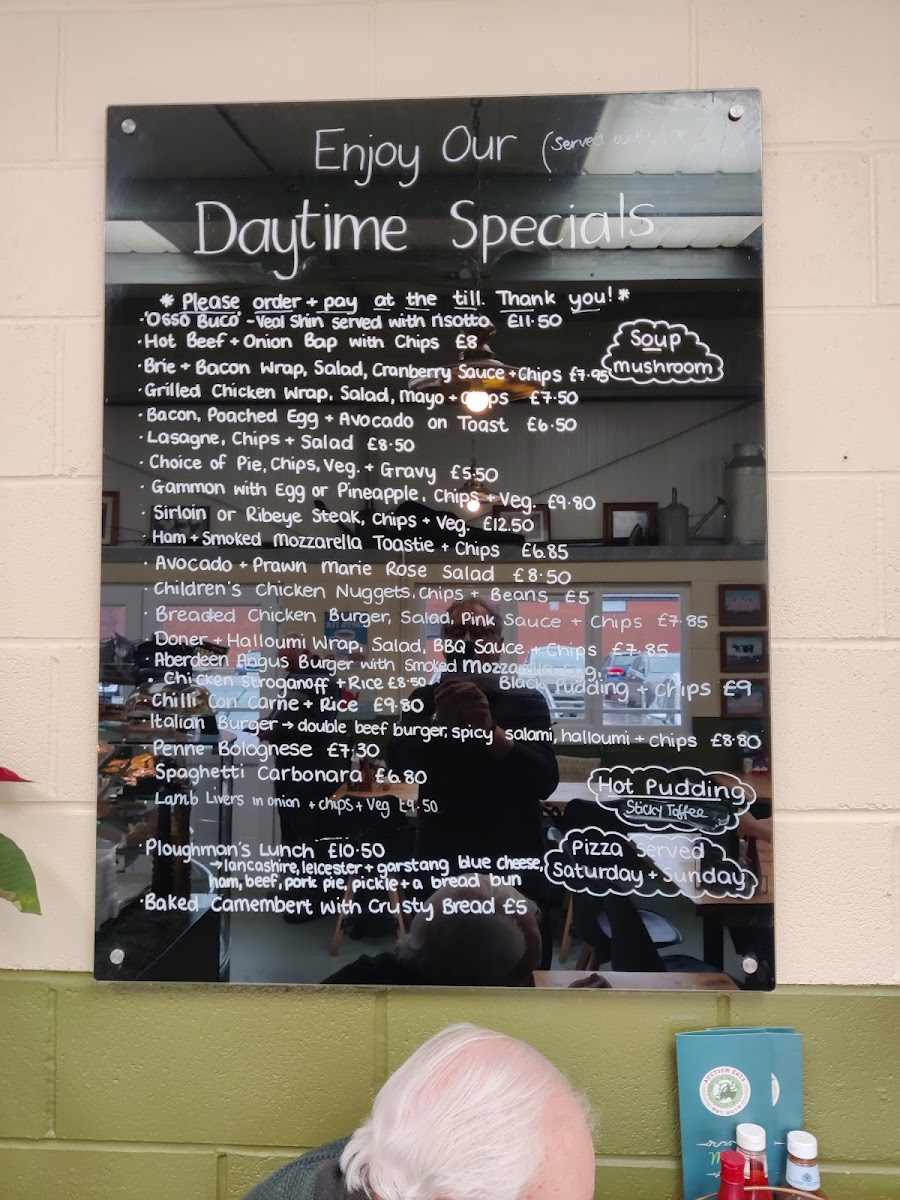 Enjoy Our (Served until
Daytime Specials
* Please order + pay at the till. Thank you! *
· 'Osso Buco' - Veal Shin served with risotto £11.50
· Hot Beef + Onion Bap with Chips £8
Soup
mushroom
· Brie + Bacon Wrap, Salad, Cranberry Sauce + Chips £7.95
· Grilled Chicken Wrap, Salad, Mayo + Chips £7.50
· Bacon, Poached Egg + Avocado on Toast £6.50
· Lasagne, Chips + Salad £8.50
· Choice of Pie, Chips, Veg. + Gravy £5.50
· Gammon with Egg or Pineapple, Chips + Veg. £9.80
· Sirloin or Ribeye Steak, Chips + Veg. £12.50
· Ham + Smoked Mozzarella Toastie + Chips £6.85
· Avocado + Prawn Marie Rose Salad £8.50
· Children's Chicken Nuggets, Chips + Beans £5
· Breaded Chicken Burger, Salad, Pink Sauce + Chips £7.85
· Doner + Halloumi Wrap, Salad, BBQ Sauce + Chips £7.85
· Aberdeen Angus Burger with Smoked Mozzarella, Egg,
Black Pudding + Chips £9
· Chicken Stroganoff + Rice £8.50
· Chilli Con Carne + Rice £9.80
· Italian Burger → double beef burger, spicy salami, halloumi + chips £8.80
· Penne Bolognese £7.30
· Spaghetti Carbonara £6.80
· Lamb Livers in onion + chips + Veg £9.50
Hot Pudding
Sticky Toffee
· Ploughman's Lunch £10.50
→ lancashire, leicester + garstang blue cheese,
ham, beef, pork pie, pickle + a bread bun
Pizza Served
Saturday + Sunday
· Baked Camembert with Crusty Bread £5
AUCTION CAFE